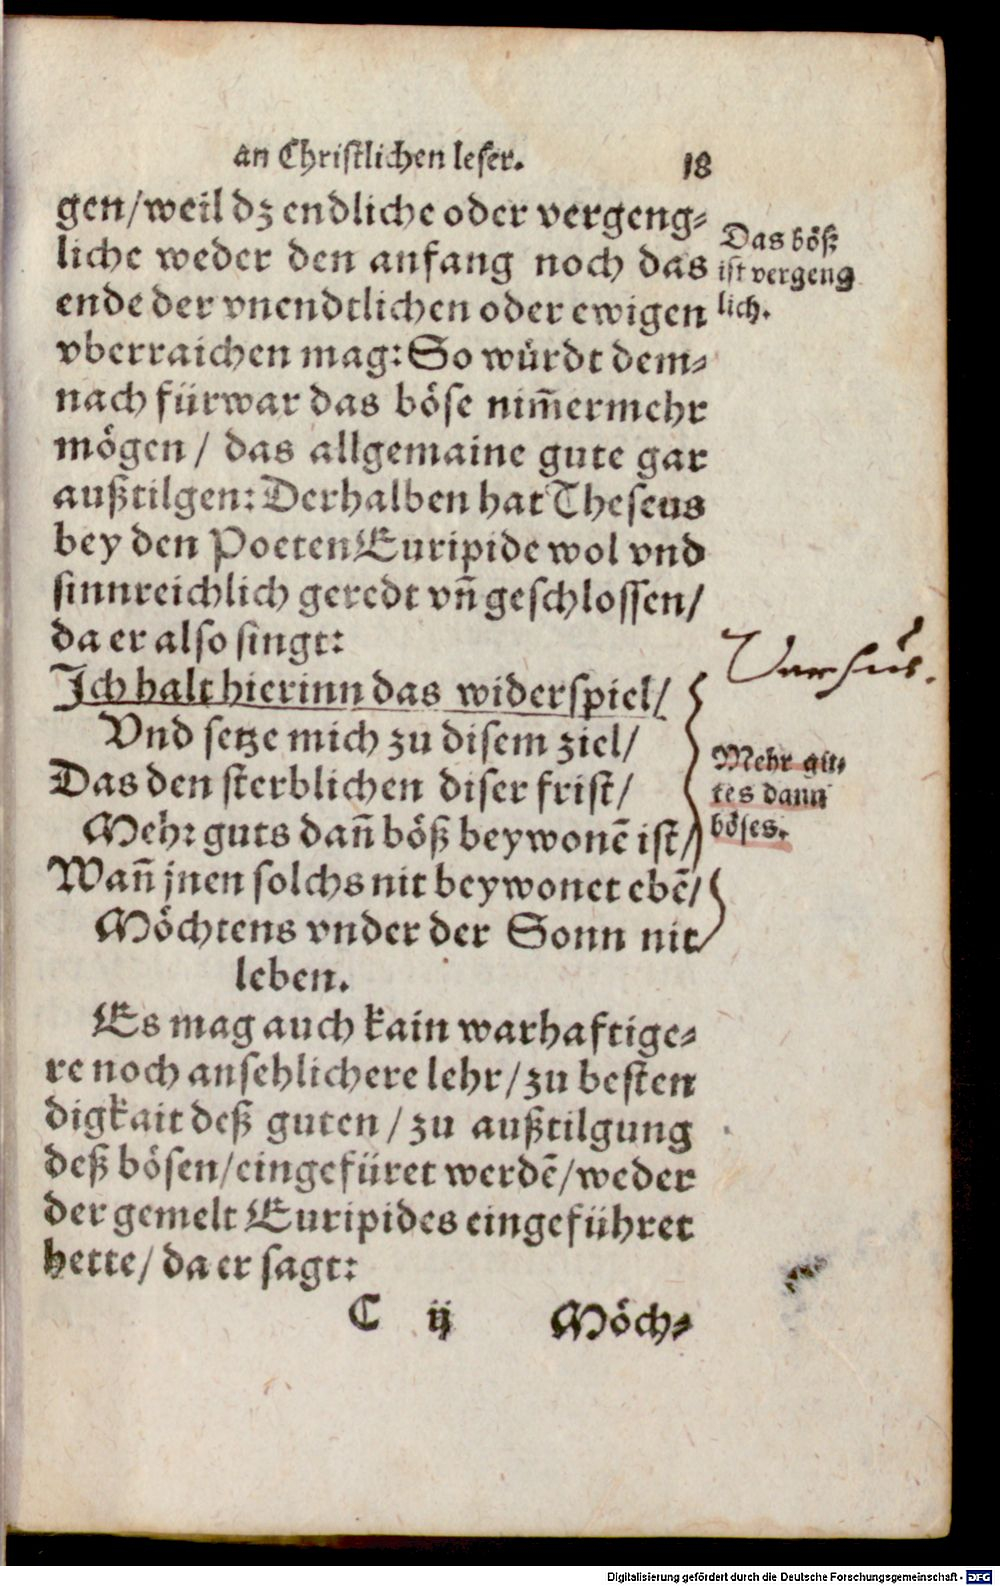 an Christlichen leser. 18
gen/weil dz endliche oder vergeng⸗
liche weder den anfang noch das
ende der vnendtlichen oder ewigen
vberraichen mag: So würdt dem⸗
nach fürwar das böse nim̃ermehr
mögen/ das allgemaine gute gar
außtilgen: Derhalben hat Theseus
bey den Poeten Euripide wol vnd
sinnreichlich geredt vñ geschlossen/
da er also singt:
Das böß
ist vergeng
lich.
Ich halt hierinn das widerspiel/
Vnd setze mich zu disem ziel/
Das den sterblichen diser frist/
Mehr guts dañ böß beywonē ist/
Wañ jnen solchs nit beywonet ebē/
Möchtens vnder der Sonn nit
leben.
Versus.
Mehr gu⸗
tes dann
böses.
Es mag auch kain warhaftige⸗
re noch ansehlichere lehr/zu besten
digkait deß guten/ zu außtilgung
deß bösen/eingefüret werdē/weder
der gemelt Euripides eingeführet
hette/ da er sagt:
C ij Möch⸗
Digitalisierung gefördert durch die Deutsche Forschungsgemeinschaft - DFG